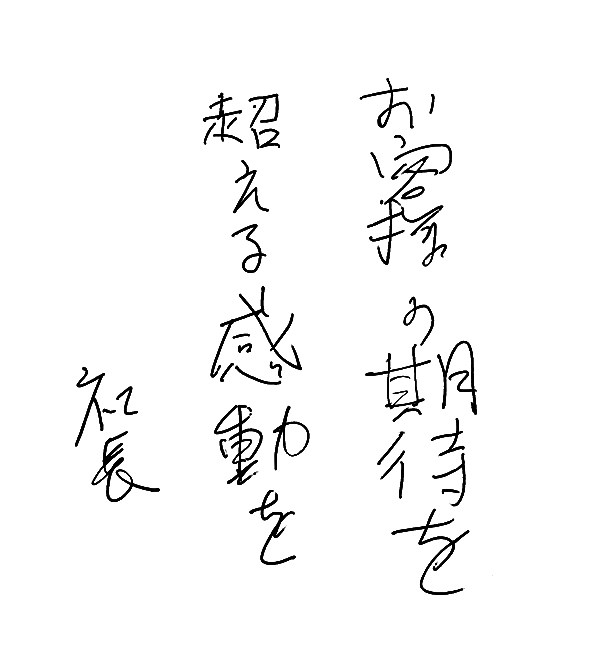 お客様の期待を
超える感動を
社長